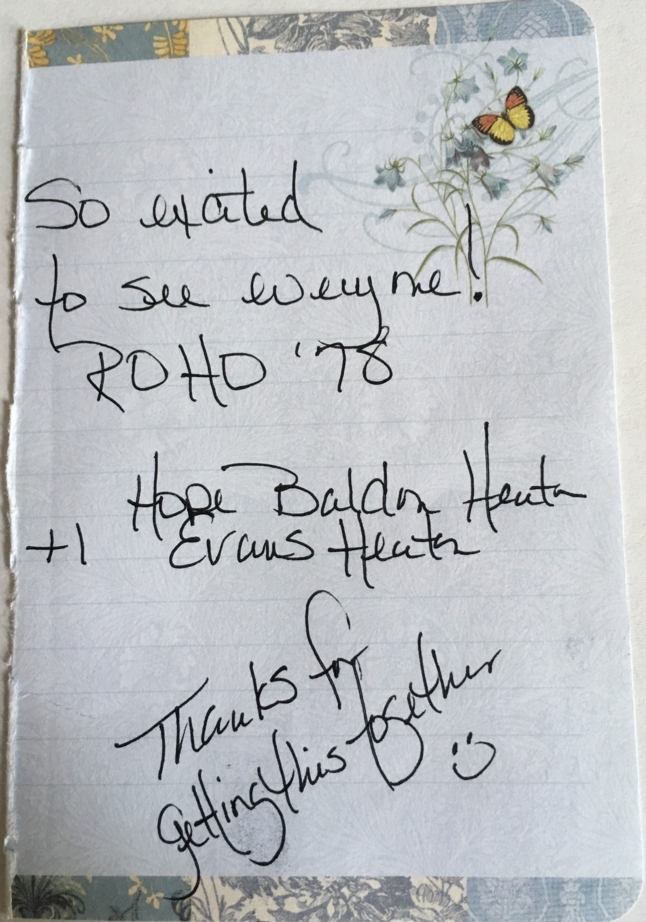 So excited
to see everyone!
ROHO '78
Hope Baldon Heaton
+1 Evans Heaton
Thanks for
getting this together :)